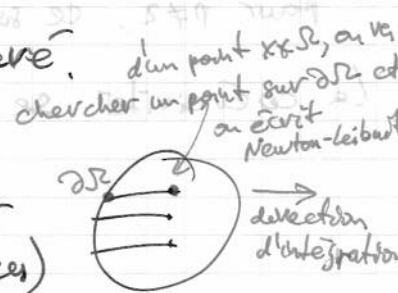 evé.
d'un point x∈Ω, on va
chercher un point sur ∂Ω et
on écrit
Newton-Leibni
∂Ω
direction
d'intégration
es)